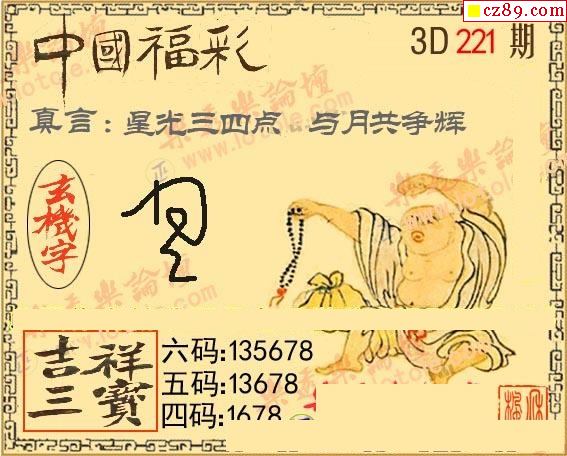 cz89.com
中國福彩
3D 221 期
真言：星光三四点 与月共争辉
玄機字
吉祥三寶
六码:135678
五码:13678
四码:1678